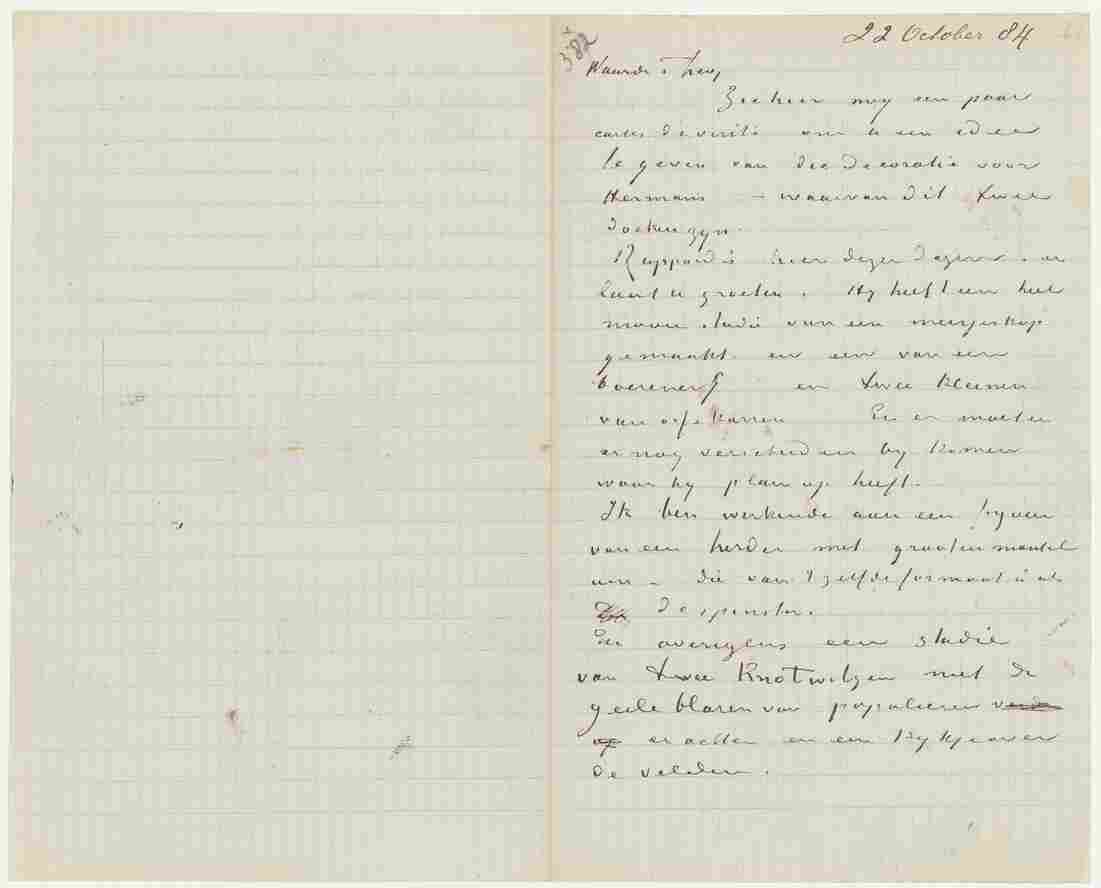 22 October 84
382
Waarde Theo,
Zie hier nog een paar
cartes de visite om u een idee
te geven van die decoratie voor
Hermans – waarvan dit twee
doeken zyn.
Rappard is hier dezer dagen en
laat u groeten. Hy heeft een heel
mooie studie van een meisjeskop
gemaakt en een van een
boerenerf en twee kleinen
van ossekarren En er moeten
er nog verscheiden by komen
waar hy plan op heeft.
Ik ben werkende aan een figuur
van een herder met grooten mantel
om – die van 't zelfde formaat is als
de spinster.
En overigens een studie
van twee Knotwilgen met de
geele blaren van populieren
er achter en een Kykje over
de velden.